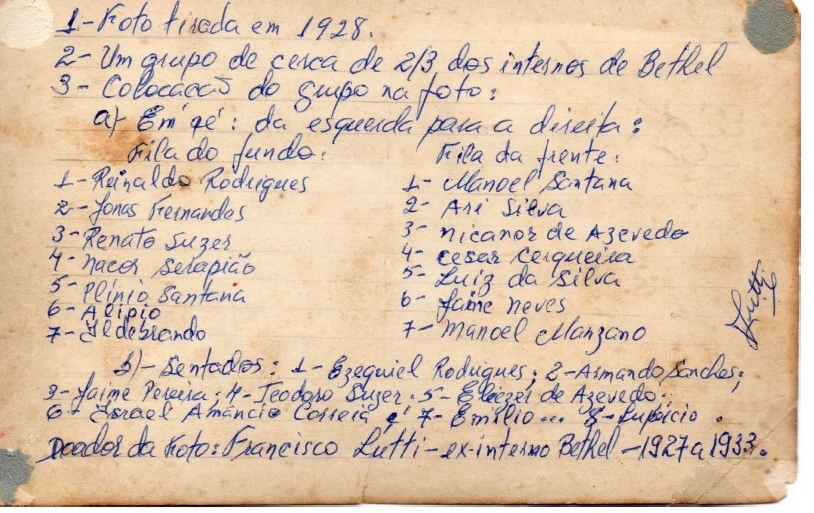 1- Foto tirada em 1928.
2- Um grupo de cerca de 2/3 dos internos de Bethel
3- Colocacão do grupo na foto:
a) Em pé: da esquerda para a direita:
Fila do fundo:
1- Reinaldo Rodrigues
2- Jonas Fernandes
3- Renato Suzer
4- Nacor Serapião
5- Plínio Santana
6- Alípio
7- Ildebrando
Fila da frente:
1- Manoel Santana
2- Ari Silva
3- Nicanor de Azevedo
4- Cesar Cerqueira
5- Luiz da Silva
6- Jaime Neves
7- Manoel Manzano
Lutti
b)- Sentados: 1- Ezequiel Rodrigues; 2- Armando Sanches;
3- Jaime Pereira; 4- Teodoro Suzer. 5- Eliézer de Azevedo;
6- Israel Amâncio Correia e 7- Emílio... 8- Lupércio.
Doador da Foto: Francisco Lutti - ex-interno Bethel - 1927 a 1933.